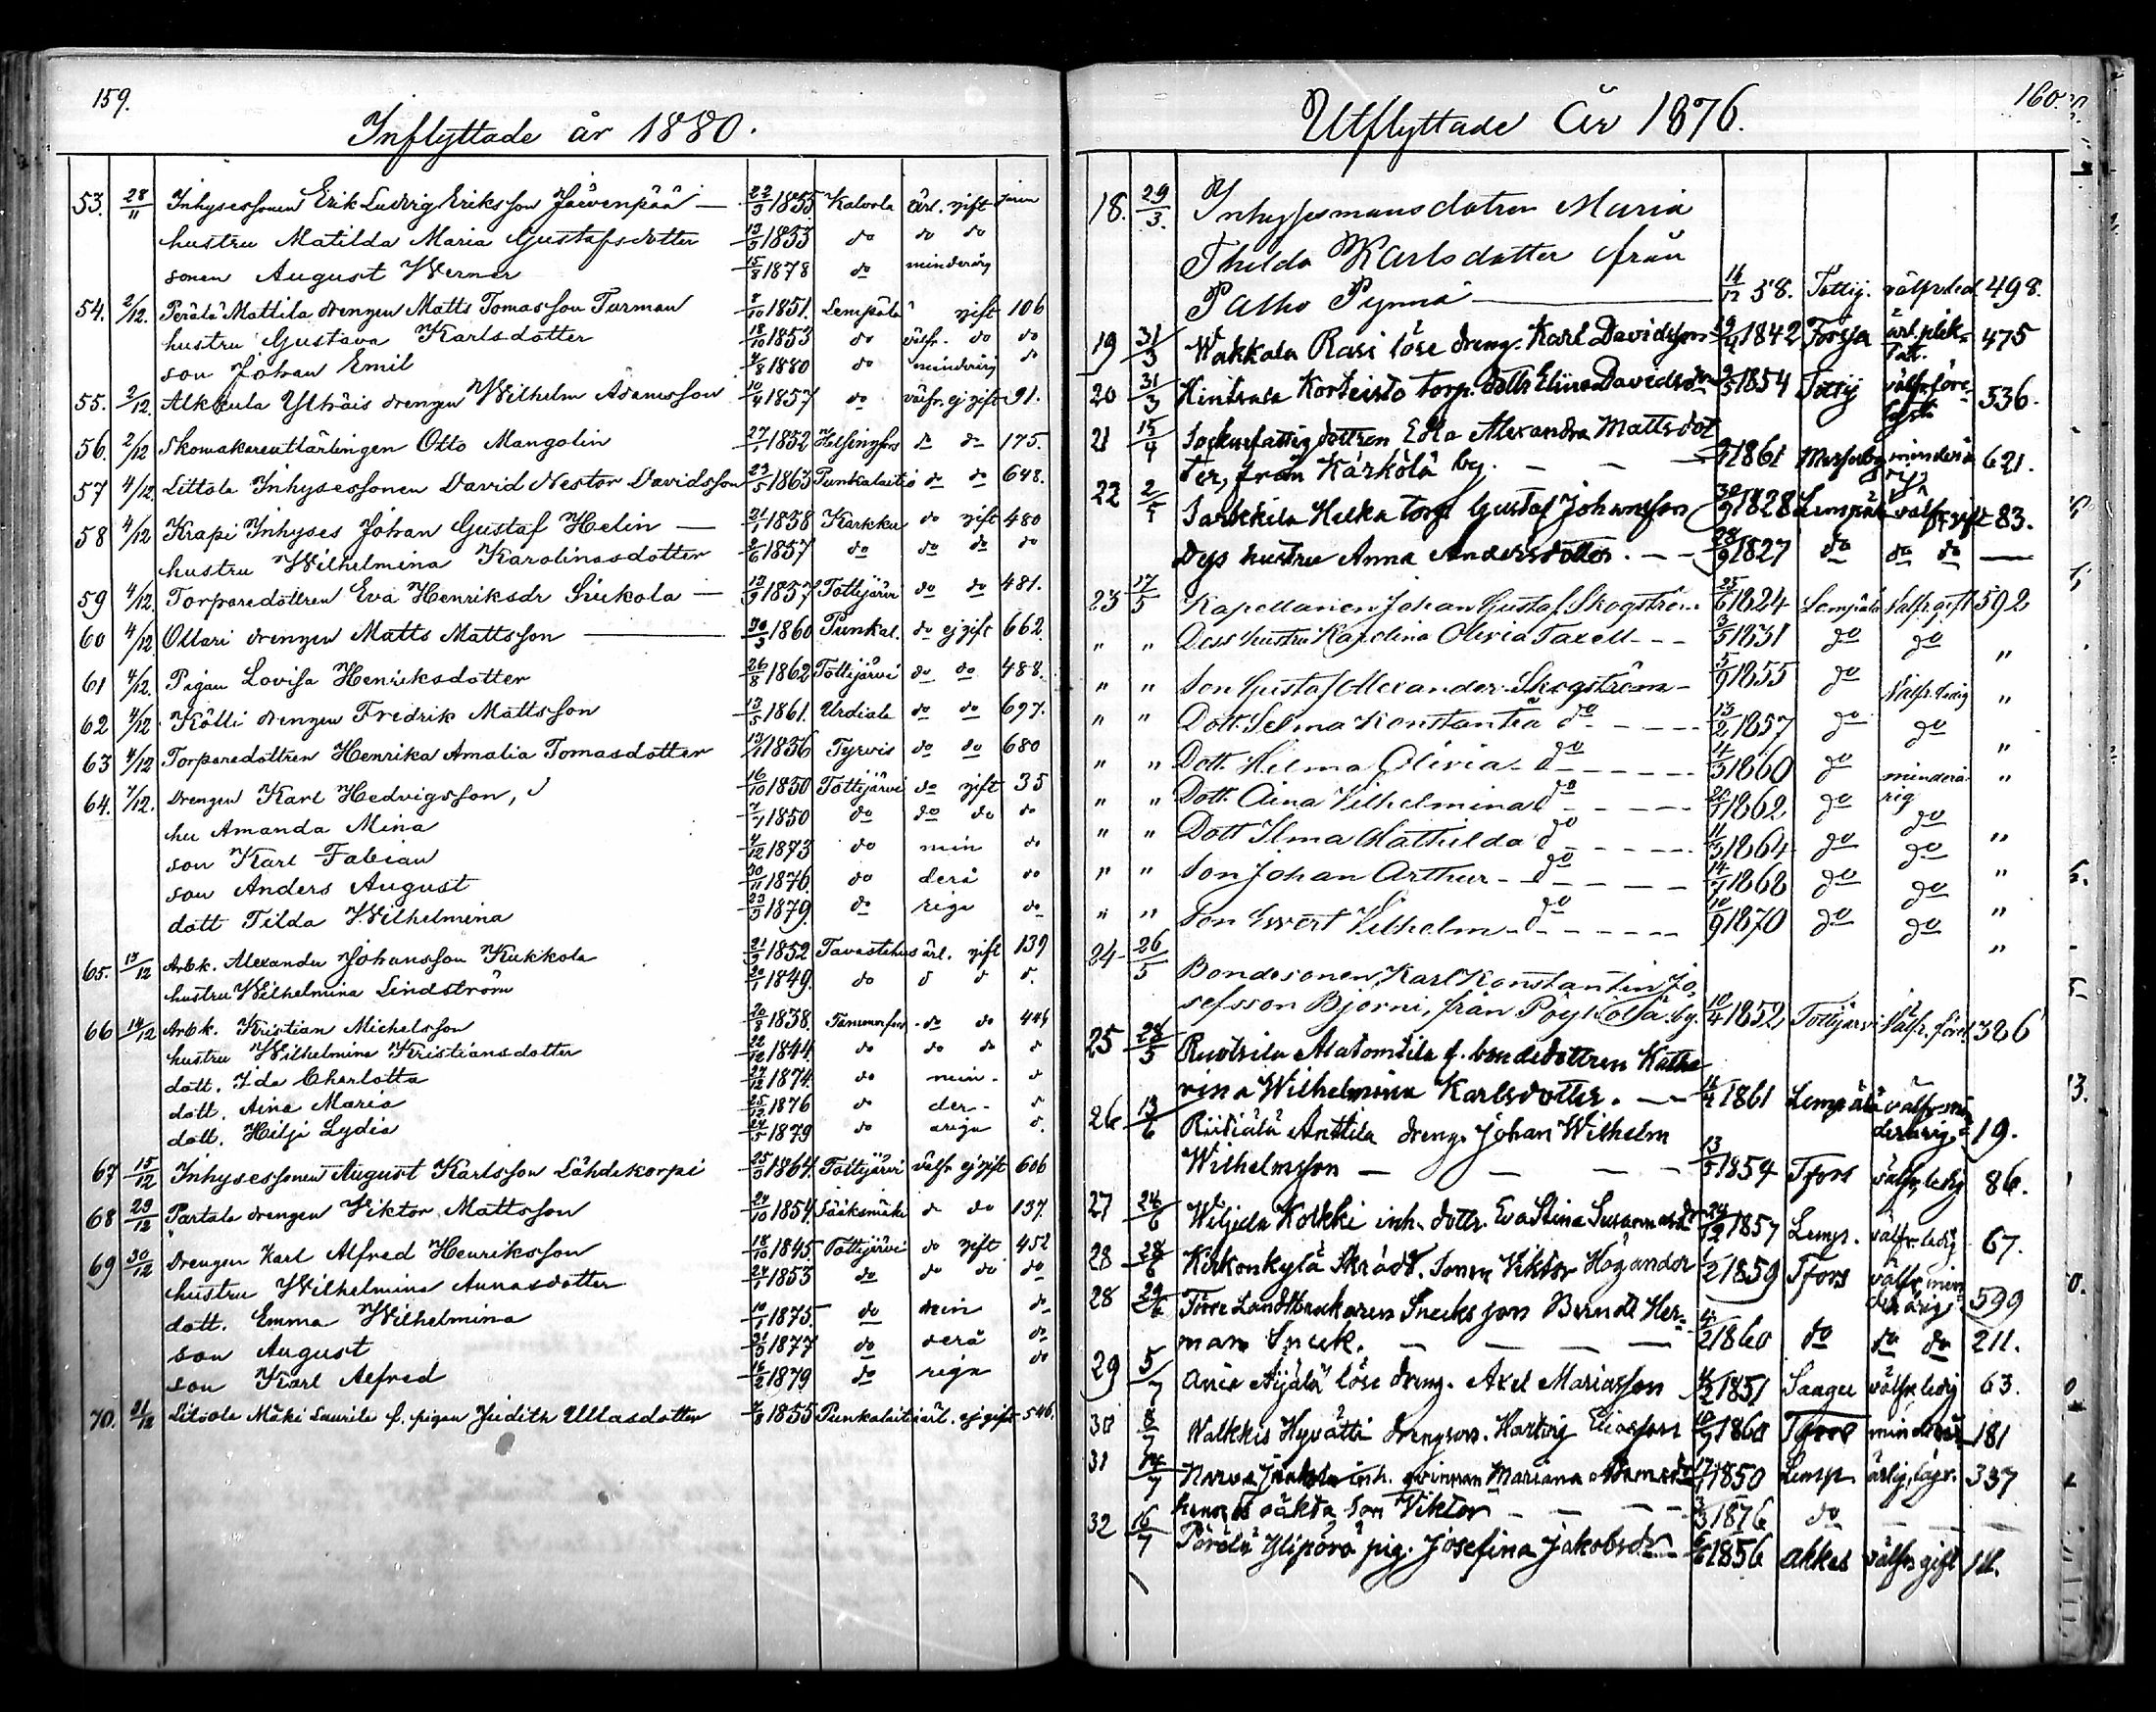 159.
Inflyttade år 1880.
53. 28/11 Inhysessonen Erik Ludvig Eriksson Järvenpää — 22/9 1855 Kalvola ärl. gift
hustru Matilda Maria Gustafsdotter 1833 do do do
sonen August Werner 15/8 1878 do minderårig
54. 2/12. Perälä Mattila drengen Matts Tomasson Turman 8/10 1851. Lempälä gift 106
hustru Gustava Karlsdotter 18/10 1853 do välfr. do do
son Johan Emil 4/8 1880 do minderårig do
55. 2/12. Alkkula Ylhäis drengen Wilhelm Adamsson 10/4 1857 do välfr. ej gift 91.
56. 2/12 Skomakareutlärlingen Otto Mangolin 27/1 1852 Helsingfors do do 175.
57 4/12 Littola Inhysessonen David Nestor Davidsson 23/5 1863 Punkalaitio do do 648.
58 4/12 Krapi Inhyses Johan Gustaf Helin — 21/1 1838 Karkku do gift 480
hustru Wilhelmina Karolinasdotter 2/6 1857 do do do do
59 4/12. Torparedottren Eva Henriksdr Siukola — 1857 Tottijärvi do do 481.
60 4/12 Ollari drengen Matts Mattsson — 30/3 1860 Punkal. do ej gift 662.
61 4/12. Pigan Lovisa Henriksdotter 26/8 1862 Tottijärvi do do 488.
62 4/12 Kölli drengen Fredrik Mattsson 13/5 1861. Urdiala do do 697.
63 4/12 Torparedottren Henrika Amalia Tomasdotter 1836 Tyrvis do do 680
64. 7/12. Drengen Karl Hedvigsson, 16/10 1850 Tottijärvi do gift 35
hu Amanda Mina 7/7 1850 do do do do
son Karl Fabian 4/12 1873 do min do
son Anders August 30/11 1876. do derå do
dott Tilda Wilhelmina 23/5 1879. do riga do
65. 13/12 Arbk. Alexander Johansson Kukkola 21/2 1852 Tavastehus ärl. gift 139
hustru Wilhelmina Lindström 20/1 1849. do
66 14/12 Arbk. Kristian Michelsson 20/8 1838. Tammerfors do do
hustru Wilhelmina Kristiansdotter 22/12 1844. do do do
dott. Ida Charlotta 27/12 1874. do min.
dott. Aina Maria 25/12 1876 do der-
dott. Hilja Lydia 24/5 1879 do åriga
67 15/12 Inhysessonen August Karlsson Lähdekorpi 25/3 1864. Tottijärvi välfr ej gift 606
68 29/12 Partala drengen Viktor Mattsson 24/10 1854. Sääksmäki do do 137.
69 30/12 Drengen Karl Alfred Henriksson 18/10 1845. Tottijärvi do gift 452
hustru Wilhelmina Annasdotter 24/1 1853 do do do do
dott. Emma Wilhelmina 10/1 1875. do min do
son August 21/5 1877 do derå do
son Karl Alfred 16/2 1879 do riga do
70. 31/12 Litiola Mäki Laurila f. pigan Judith Ullasdotter 1855 Punkalaitio ärl. ej gift 546.
160.
Utflyttade År 1876.
18. 29/3. Inhysesmansdotren Maria
Thilda Karlsdotter från
Palho Pynnä — 16/12 58. Tottij. välfr. led. 498.
19 31/3 Wakkala Rasi löse dreng. Karl Davidsson 1842 Forssa ärl. 475
20 31/3 Hintsala Korteisto torp. dottr Elina Davidsdr 1854 Tottij välfr. före 536.
21 15/4 Sockenfattig dottren Edla Alexandra Mattsdot
ter, från Kärkölä by. — — 1861 minderå 621.
22 2/5 Sarbekila Helka torp Gustaf Johansson 30/9 1828 Lempälä välfr. gift 83.
Dess hustru Anna Andersdotter. — — 28/9 1827 do do do —
23 17/5 Kapellanen Johan Gustaf Skogström 25/6 1824 Lempälä Välfr. gift 592
" " Dess hustru Karolina Olivia Taxell - - 3/5 1831 do do "
" " Son Gustaf Alexander Skogström - 1855 do Välfr. ledig "
" " Dott. Selma Konstantia do - - - 13/2 1857 do do "
" " Dott. Hilma Olivia - do - - - - 4/3 1860 do minderå- "
" " Dott. Aina Vilhelmina do - - - 1862 do rig do
" " Dott Ilma Mathilda do - - - - 11/3 1864 do do "
" " Son Johan Arthur - do - - - 14/7 1868 do do "
" " Son Evert Vilhelm - do - - - - 10/9 1870 do do "
24 26/5 Bondesonen, Karl Konstantin Jo-
sefsson Bjorni, från Pöyhölä by. 10/4 1852 Tottijärvi Välfr. före 326
25 28/5 Ruotsila Alatomtila f. bondedottren Katha
rina Wilhelmina Karlsdotter. — 1861 Lempälä välfr. min
derårig 19.
26 13/6 Riidiälä Anttila dreng. Johan Wilhelm
Wilhelmsson — — — 13/5 1854 Tfors välfr. ledig 86.
27 24/6 Wiljeda Kolkki inh. dottr. Eva Stina Susannasdr 1857 Lemp. välfr. ledig 67.
28 28/6 Kirkonkylä Skrädd. Sonen Viktor Högander 1/2 1859 Tfors välfr. min
derårig 599
28 29/6 Landtbrukaren Snecks son Berndt Her-
man Sneck. — — — 1860 do do do 211.
29 5/7 Äijälä löse dreng. Axel Mariasson 1851 välfr. ledig 63.
30 8/7 Walkkis Hyvätti drengson. Hartvig Eliasson 10/9 1860 Tfors minderå 181
31 14/7 Narva inh. qvinnan Mariana 1850 Lemp. ärlig 337
hennes oäkta son Viktor — — 3/3 1876 do — — —
32 16/7 Pörölä Ylipörö pig. Josefina Jakobsdr 1856 Akkas välfr. gift